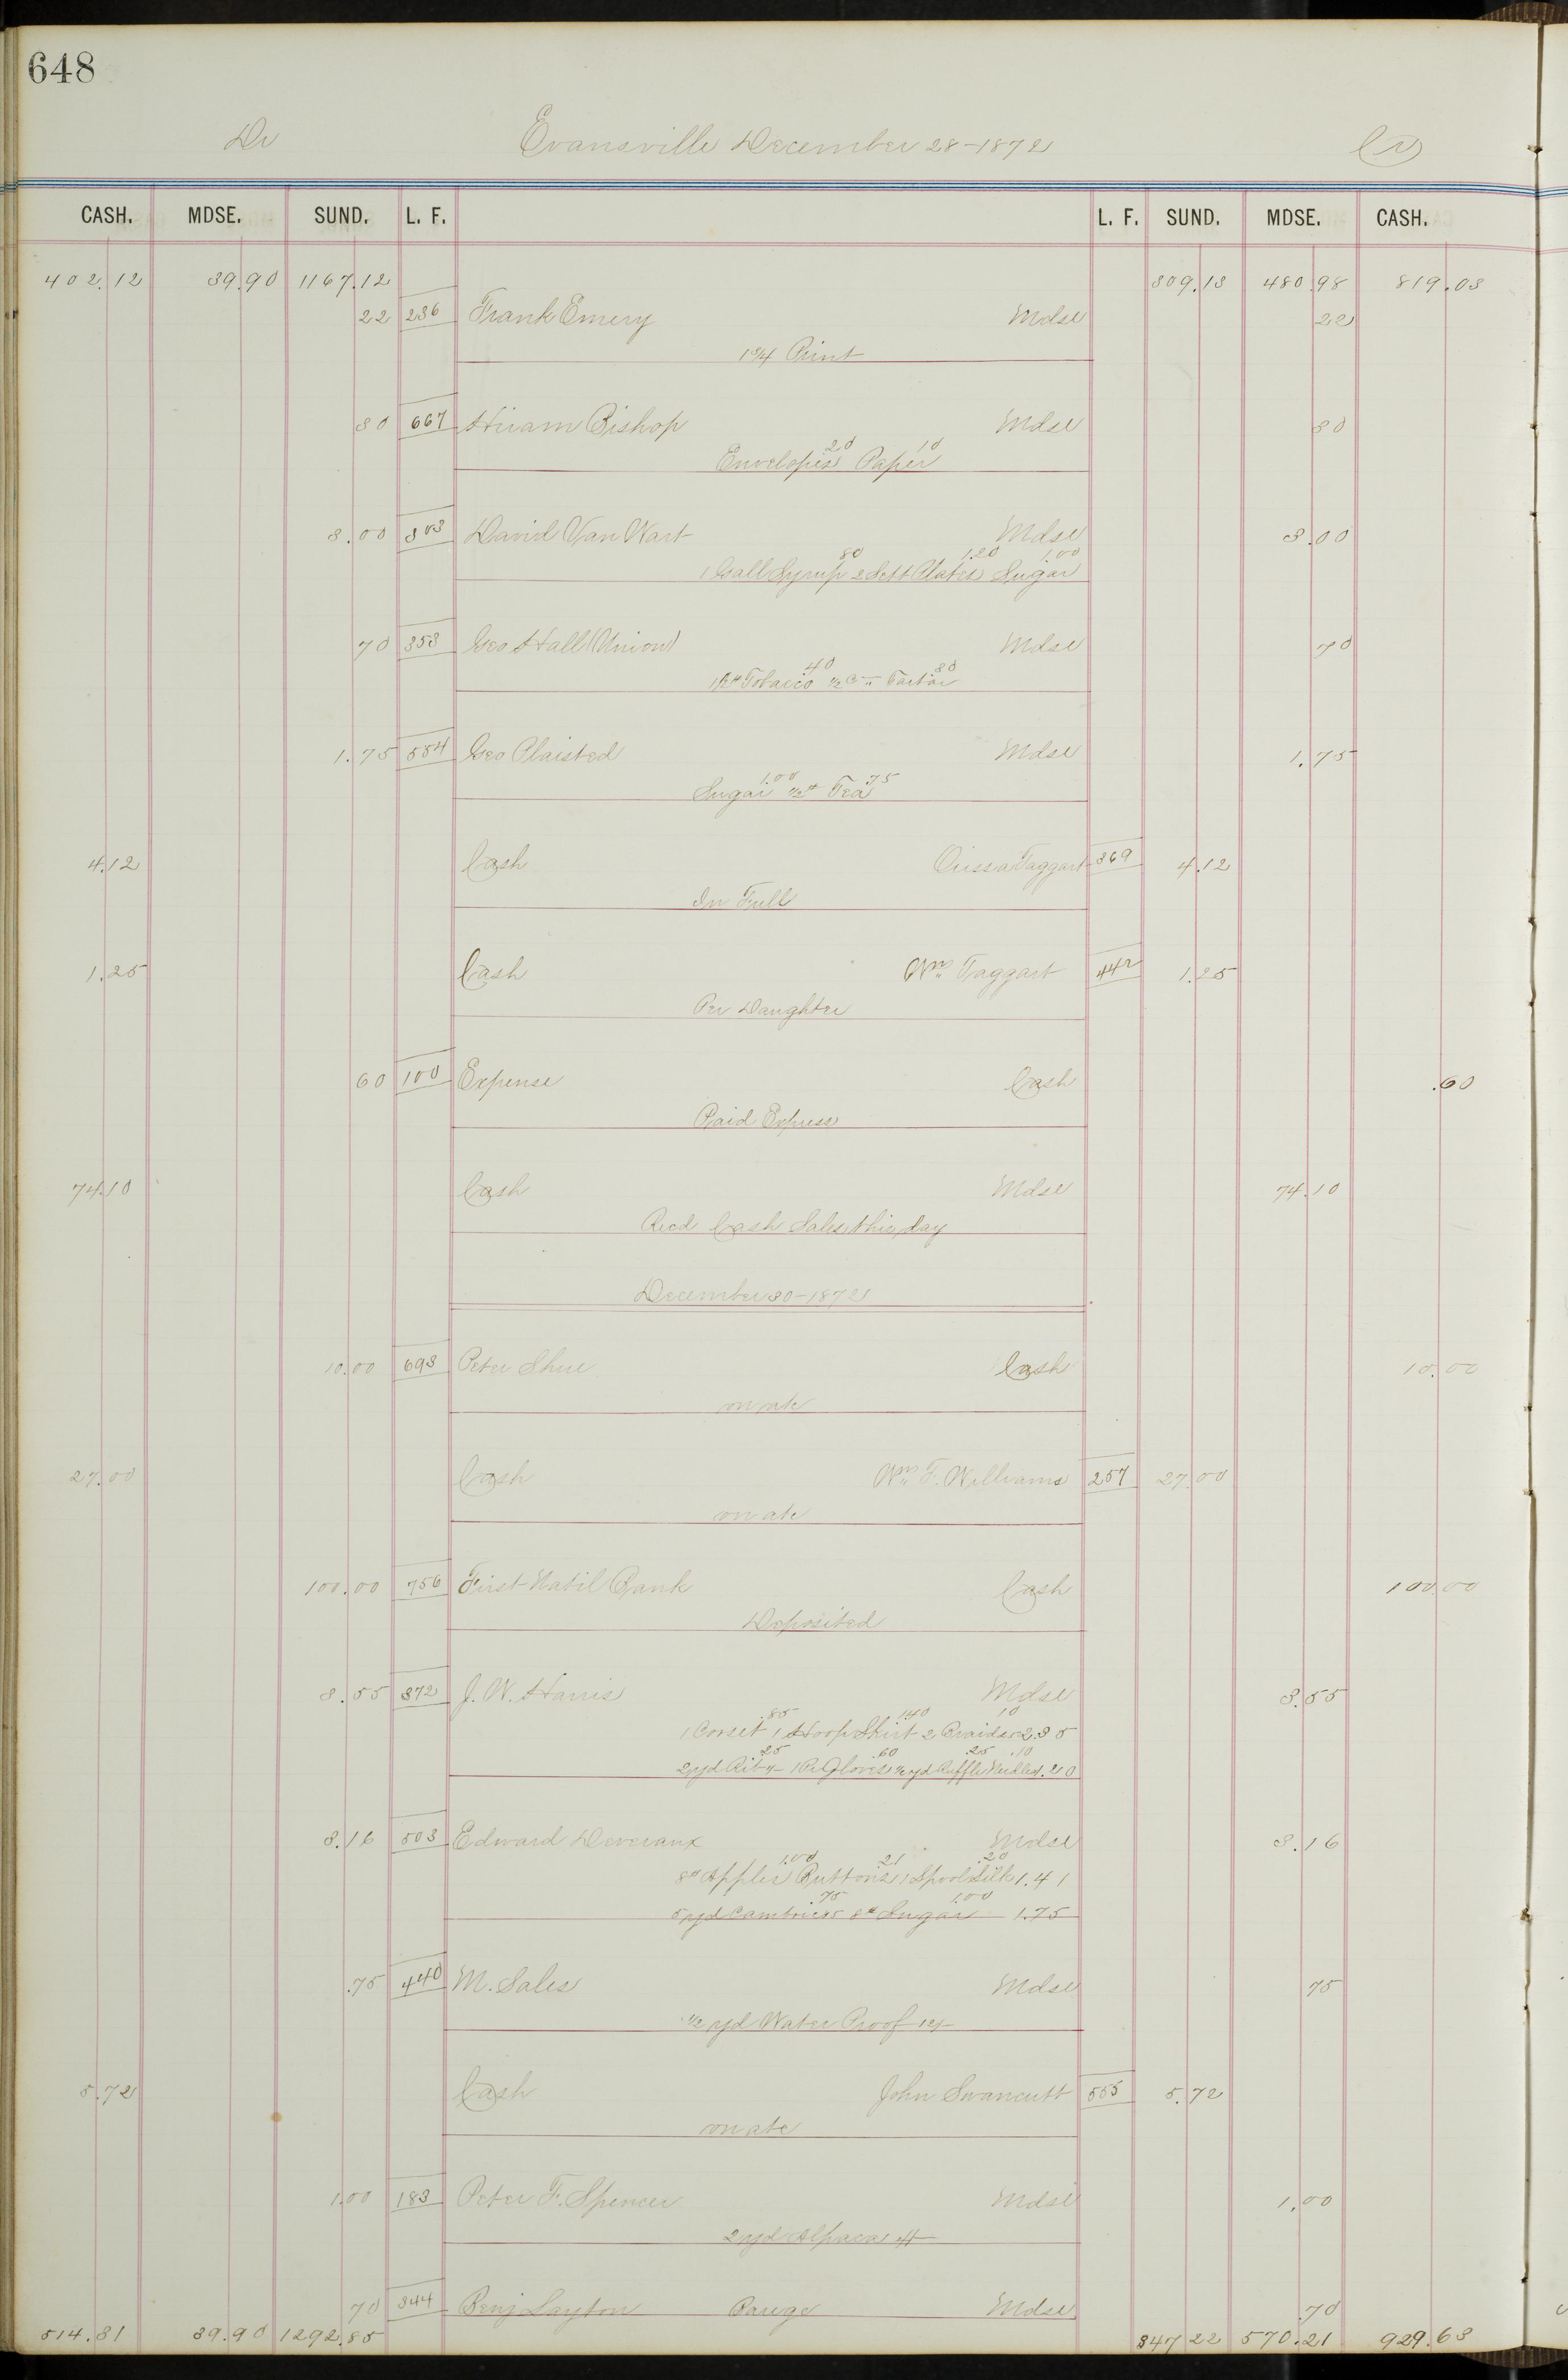 648
Dr Evansville December 28-1872 Cr
CASH. MDSE. SUND. L. F. L. F. SUND. MDSE. CASH.
402.12 39.90 1167.12 309.13 480.98 819.03
22 236 Frank Emery Mdse 22
1 3/4 Print
30 667 Hiram Bishop Mdse 30
Envelopes 20 Paper 10
3.00 303 David Van Wart Mdse 3.00
1 Gall Syrup 80 2 Sett Plates 1.20 Sugar 1.00
70 353 Geo Hall (Union) Mdse 70
Tobacco 40 1/2 Tartar 30
1.75 554 Geo Plaisted Mdse 1.75
Sugar 1.00 1/2# Tea 75
4.12 Cash Taggart 369 4.12
In Full
1.25 Cash Wm Taggart 442 1.25
Per Daughter
60 100 Expense Cash .60
Paid Express
74.10 Cash Mdse 74.10
Recd Cash Sales this day
December 30-1872
10.00 693 Peter Shue Cash 10.00
on a/c
27.00 Cash Wm F. Williams 257 27.00
on a/c
100.00 756 First Natil Bank Cash 100.00
Deposited
3.55 372 J. W. Harris Mdse 3.55
1 Corset .85 1 Hoop Skirt 1.40 2 Braids 10 2.35
2 yd Rib .25 1 Pr Gloves .60 1/2 yd Ruffle .25 Needles .10 1.20
3.16 503 Edward Deveraux Mdse 3.16
8# Apples 1.00 Buttons .21 1 Spool Silk .20 1.41
5 yd Cambric 15 .75 8# Sugar 1.00 1.75
.75 440 M. Sales Mdse 75
1/2 yd Water Proof 12/-
5.72 Cash John Swancutt 555 5.72
on a/c
1.00 183 Peter F. Spencer Mdse 1.00
2 yd Alpaca 4/-
70 344 Benj Layton Barege Mdse .70
514.31 39.90 1292.85 347 22 570.21 929.63